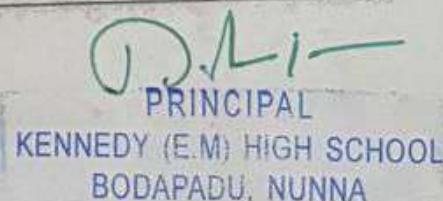 PRINCIPAL
KENNEDY (E.M) HIGH SCHOOL
BODAPADU, NUNNA